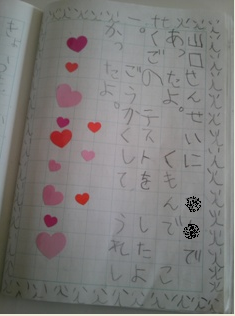 山口せんせいに で
あったよ。 くもんで こ
くごの テストを したよ
。 ごうかくして うれし
かったよ。